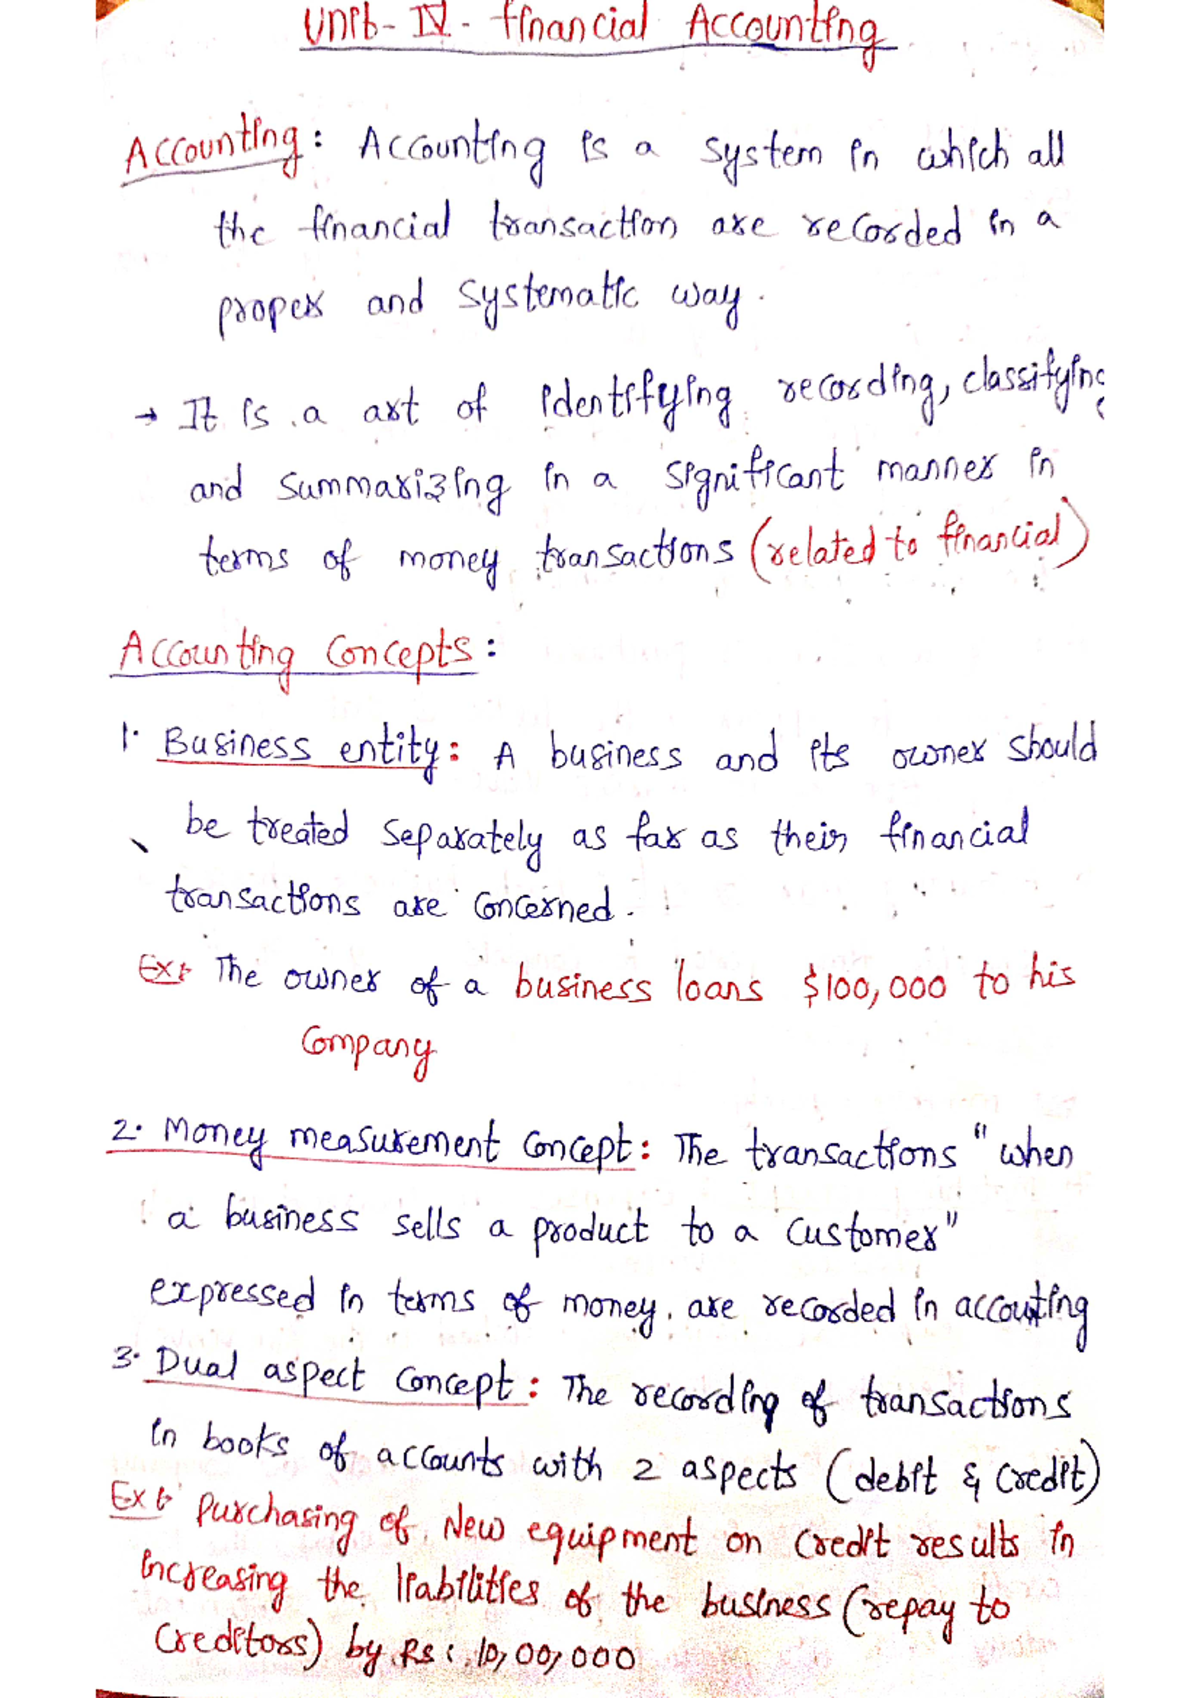 Unit - IV - Financial Accounting
Accounting: Accounting is a system in which all
the financial transaction are recorded in a
proper and systematic way.
→ It is a art of identifying recording, classifying
and summarizing in a significant manner in
terms of money transactions (related to financial)
Accounting Concepts:
1. Business entity: A business and its owner should
be treated separately as far as their financial
transactions are concerned.
Ex: The owner of a business loans $100,000 to his
Company
2. Money measurement Concept: The transactions "when
a business sells a product to a customer"
expressed in terms of money. are recorded in accouting
3. Dual aspect Concept: The recording of transactions
in books of accounts with 2 aspects (debit & Credit)
Ex: Purchasing of New equipment on Credit results in
increasing the liabilities of the business (repay to
Creditors) by Rs: 10,00,000